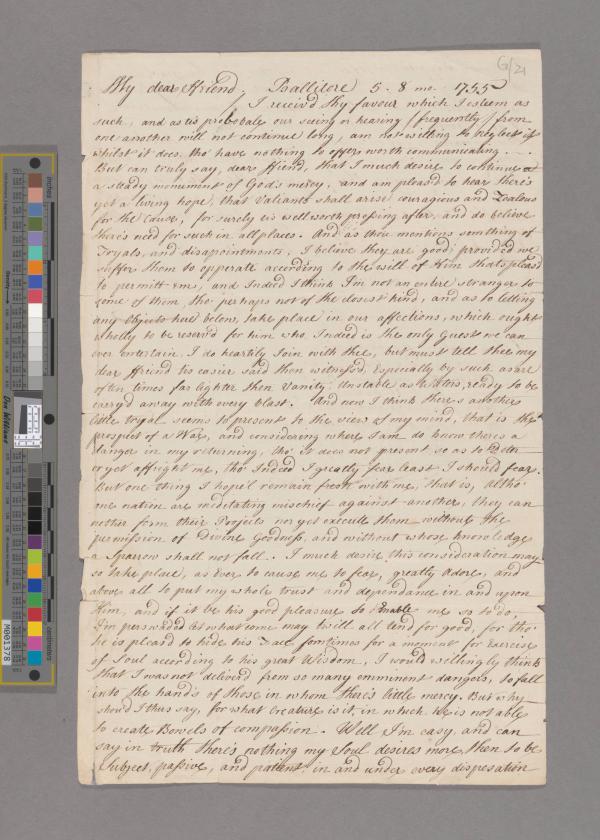 G/21
My dear ffriend, Ballitore 5 - 8 mo. 1755
I receiv'd thy favour which I esteem as
such, and as tis probable our seeing or hearing (frequently) from
one another will not continue long, am not willing to neglect it
whilst it does. tho' have nothing to offer worth communicating . . .
But can truly say, dear ffriend, that I much desire to continue
a steady monument of God's mercy, and am pleas'd to hear there's
yet a living hope, that Valiants shall arise couragious and Zealous
for the Cause, for surely tis well worth pressing after, and do believe
there's need for such in all places. And as thou mentions something of
Tryals, and disapointments, I believe they are good; provided we
suffer them to opperate according to the will of Him thats pleas'd
to permitt em, and Indeed I think I'm not an entire stranger to
some of them tho' perhaps not of the closest kind, and as to letting
any Objects here below, take place in our affections, which ought
wholly to be reserv'd for him who Indeed is the only Guest we can
ever entertain, I do heartily Join with thee, but must tell thee my
dear ffriend tis easier said then witness'd. Especially by such as are
often times far lighter then Vanity, Unstable as Watter, ready to be
carry'd away with every blast. And now I think there's another
little tryal seems to present to the view of my mind, that is the
prospect of a War, and considering where I am do know theres a
danger in my returning, tho' it does not present so as to Deter
or yet affright me, tho' Indeed I greatly fear least I should fear.
But one thing I hope'l remain fresh with me, that is, altho'
one nation are meditating mischief against another, they can
nether form their Projects nor yet execute them without the
permission of Divine Goodness, and without whose knowledge
a Sparrow shall not fall. I much desire this consideration may
so take place, as Ever to cause me to fear, greatly Adore, and
above all to put my whole trust and dependance in and upon
Him, and if it be his good pleasure to Enable me so to do,
I'm perswaded let what come may twill all tend for good, for tho'
he is pleas'd to hide his Face somtimes for a moment for Exercise
of Soul according to his great Wisdom, I would willingly think
that I was not deliver'd from so many emminent dangers, to fall
into the hands of those in whom there's little mercy. But why
shou'd I thus say, for what Creature is it, in which He is not able
to create Bowels of compassion. Well I'm easy, and can
say in truth there's nothing my Soul desires more, then to be
Subject, passive, and patient in and under every dispensation
inches
centimeters
Don Williams
M001378